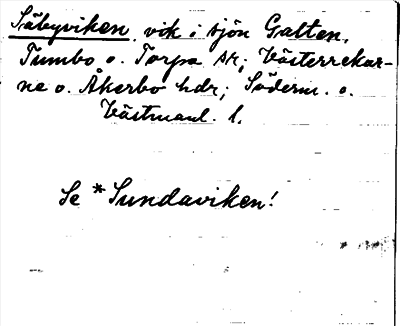 Säbyviken, vik i sjön Galten,
Tumbo o. Torpa sr; Västerrekar-
ne o. Åkerbo hdr; Söderm. o.
Västmanl. l.
Se *Sundaviken!